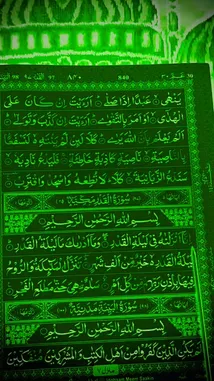 يَنْهٰىۙ عَبْدًا اِذَا صَلّٰىؕ اَرَءَيْتَ اِنْ كَانَ عَلَى
الْهُدٰٓىۙ اَوْ اَمَرَ بِالتَّقْوٰىؕ اَرَءَيْتَ اِنْ كَذَّبَ وَتَوَلّٰىؕ
اَلَمْ يَعْلَمْ بِاَنَّ اللّٰهَ يَرٰىؕ كَلَّا لَئِنْ لَّمْ يَنْتَهِ لَنَسْفَعًۢا
بِالنَّاصِيَةِۙ نَاصِيَةٍ كَاذِبَةٍ خَاطِئَةٍۚ فَلْيَدْعُ نَادِيَهٗۙ
سَنَدْعُ الزَّبَانِيَةَۙ كَلَّاؕ لَا تُطِعْهُ وَاسْجُدْ وَاقْتَرِبْ
سُوْرَةُ الْقَدْرِ مَكِّيَّةٌ
بِسْمِ اللّٰهِ الرَّحْمٰنِ الرَّحِيْمِ
اِنَّآ اَنْزَلْنٰهُ فِيْ لَيْلَةِ الْقَدْرِۚ وَمَآ اَدْرٰىكَ مَا لَيْلَةُ الْقَدْرِؕ
لَيْلَةُ الْقَدْرِ خَيْرٌ مِّنْ اَلْفِ شَهْرٍؕ تَنَزَّلُ الْمَلٰٓئِكَةُ وَالرُّوْحُ
فِيْهَا بِاِذْنِ رَبِّهِمْ مِّنْ كُلِّ اَمْرٍۙ سَلٰمٌ هِيَ حَتّٰى مَطْلَعِ الْفَجْرِ
سُوْرَةُ الْبَيِّنَةِ مَدَنِيَّةٌ
بِسْمِ اللّٰهِ الرَّحْمٰنِ الرَّحِيْمِ
لَمْ يَكُنِ الَّذِيْنَ كَفَرُوْا مِنْ اَهْلِ الْكِتٰبِ وَالْمُشْرِكِيْنَ مُنْفَكِّيْنَ